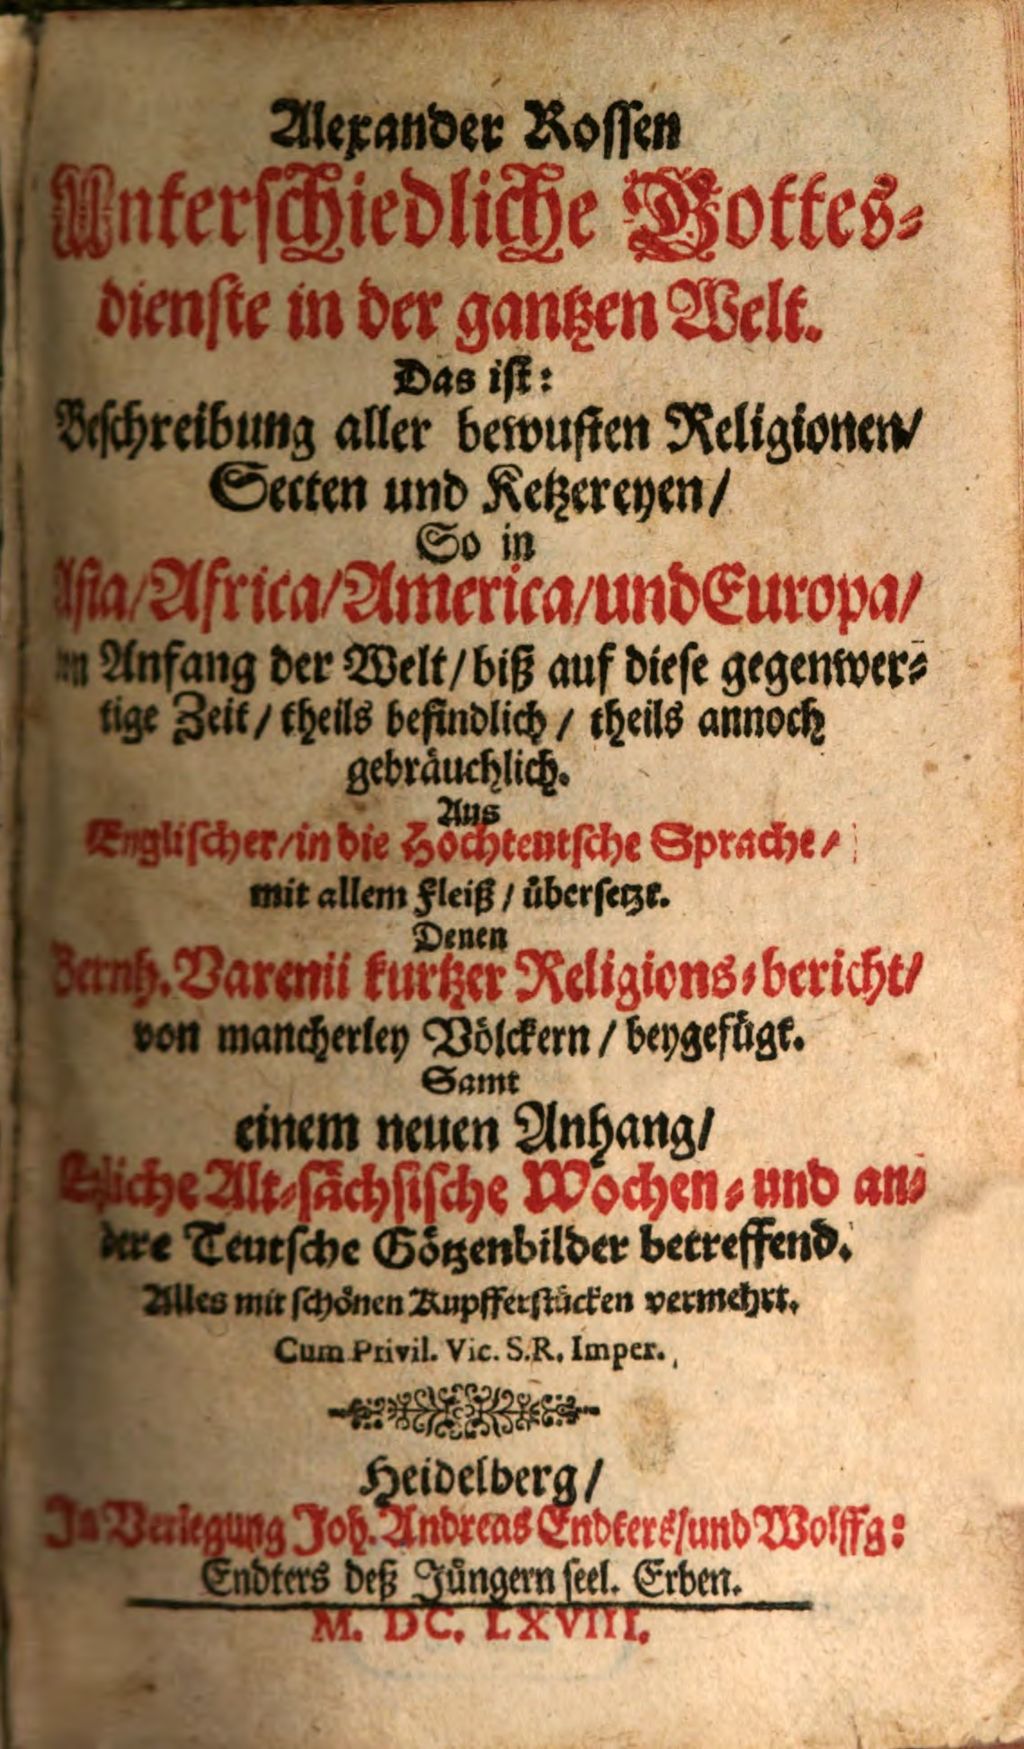 Alexander Rossen
Unterschiedliche Gottes-
dienste in der gantzen Welt.
Das ist:
Beschreibung aller bewusten Religionen/
Secten und Ketzereyen/
So in
Asia/Africa/America/und Europa/
Anfang der Welt/biß auf diese gegenwer-
tige Zeit/theils befindlich/theils annoch
gebräuchlich.
Aus
Englischer/in die Hochteutsche Sprache/
mit allem Fleiß/übersetzt.
Denen
Bernh. Varenii kurtzer Religions-bericht/
von mancherley Völckern/beygefügt.
Samt
einem neuen Anhang/
Etliche Alt-sächsische Wochen- und an-
dere Teutsche Götzenbilder betreffend.
Alles mit schönen Kupfferstücken vermehrt.
Cum Privil. Vic. S.R. Imper.
Heidelberg/
In Verlegung Joh. Andreas Endters/und Wolffg:
Endters deß Jüngern seel. Erben.
M. DC. LXVIII.